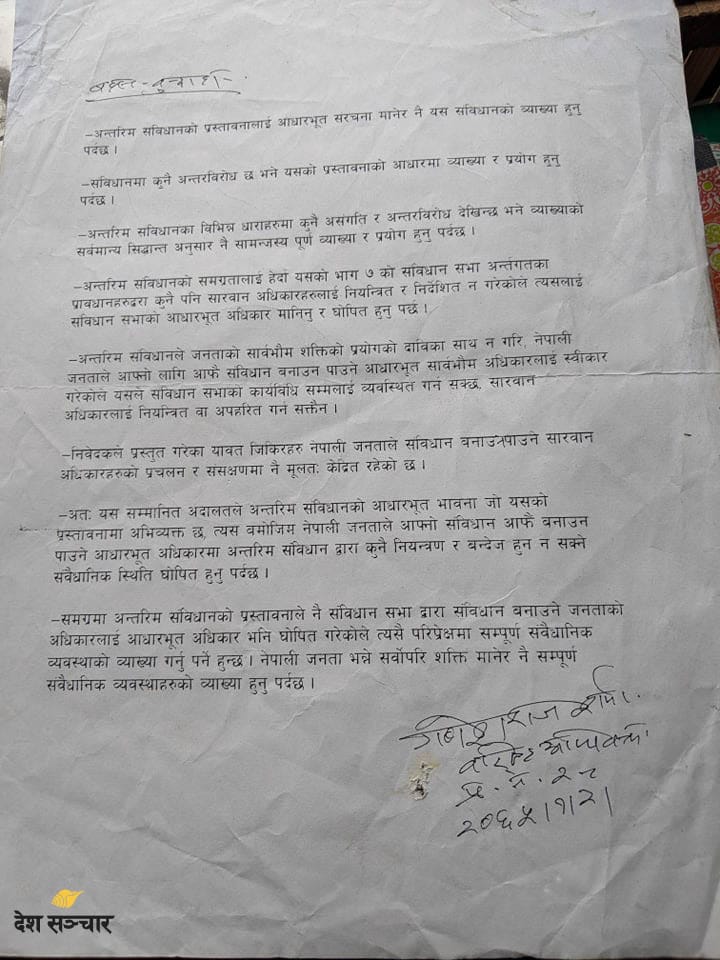 बहस-बुँदाहरु-
–अन्तरिम संविधानको प्रस्तावनालाई आधारभूत संरचना मानेर नै यस संविधानको व्याख्या हुनु
पर्दछ ।
–संविधानमा कुनै अन्तरविरोध छ भने यसको प्रस्तावनाको आधारमा व्याख्या र प्रयोग हुनु
पर्दछ ।
–अन्तरिम संविधानका विभिन्न धाराहरुमा कुनै असंगति र अन्तरविरोध देखिन्छ भने व्याख्याको
सर्वमान्य सिद्धान्त अनुसार नै सामन्जस्य पूर्ण व्याख्या र प्रयोग हुनु पर्दछ ।
–अन्तरिम संविधानको समग्रतालाई हेर्दा यसको भाग ७ को संविधान सभा अन्र्तगतका
प्रावधानहरुद्वरा कुनै पनि सारवान अधिकारहरुलाई नियन्त्रित र निर्देशित न गरेकोले त्यसलाई
संविधान सभाको आधारभूत अधिकार मानिनु र घोषित हुनु पर्छ ।
–अन्तरिम संविधानले जनताको सार्वभौम शक्तिको प्रयोगको दाविका साथ न गरि, नेपाली
जनताले आफ्नो लागि आफै संविधान बनाउन पाउने आधारभूत सार्वभौम अधिकारलाई स्वीकार
गरेकोले यसले संविधान सभाको कार्यविधि सम्मलाई व्यवस्थित गर्न सक्छ, सारवान
अधिकारलाई नियन्त्रित वा अपहरित गर्न सक्तैन ।
–निवेदकले प्रस्तुत गरेका यावत जिकिरहरु नेपाली जनताले संविधान बनाउत्रपाउने सारवान
अधिकारहरुको प्रचलन र संसक्षणमा नै मूलतः केद्रित रहेको छ ।
–अतः यस सम्मानित अदालतले अन्तरिम संविधानको आधारभूत भावना जो यसको
प्रस्तावनामा अभिव्यक्त छ, त्यस बमोजिम् नेपाली जनताले आफ्नो संविधान आफै बनाउन
पाउने आधारभूत अधिकारमा अन्तरिम संविधान द्वारा कुनै नियन्त्रण र बन्देज हुन न सक्ने
संवैधानिक स्थिति घोषित हुनु पर्दछ ।
–समग्रमा अन्तरिम संविधानको प्रस्तावनाले नै संविधान सभा द्वारा संविधान बनाउने जनताको
अधिकारलाई आधारभूत अधिकार भनि घोषित गरेकोले त्यसै परिप्रेक्षमा सम्पूर्ण संवैधानिक
व्यवस्थाको व्याख्या गर्नु पर्ने हुन्छ । नेपाली जनता भन्ने सर्वोपरि शक्ति मानेर नै सम्पूर्ण
संवैधानिक व्यवस्थाहरुको व्याख्या हुनु पर्दछ ।
गणेशराज शर्मा
वरिष्ठ अधिवक्ता
प्र. न. २८
२०६५।१।२।
देश सञ्चार